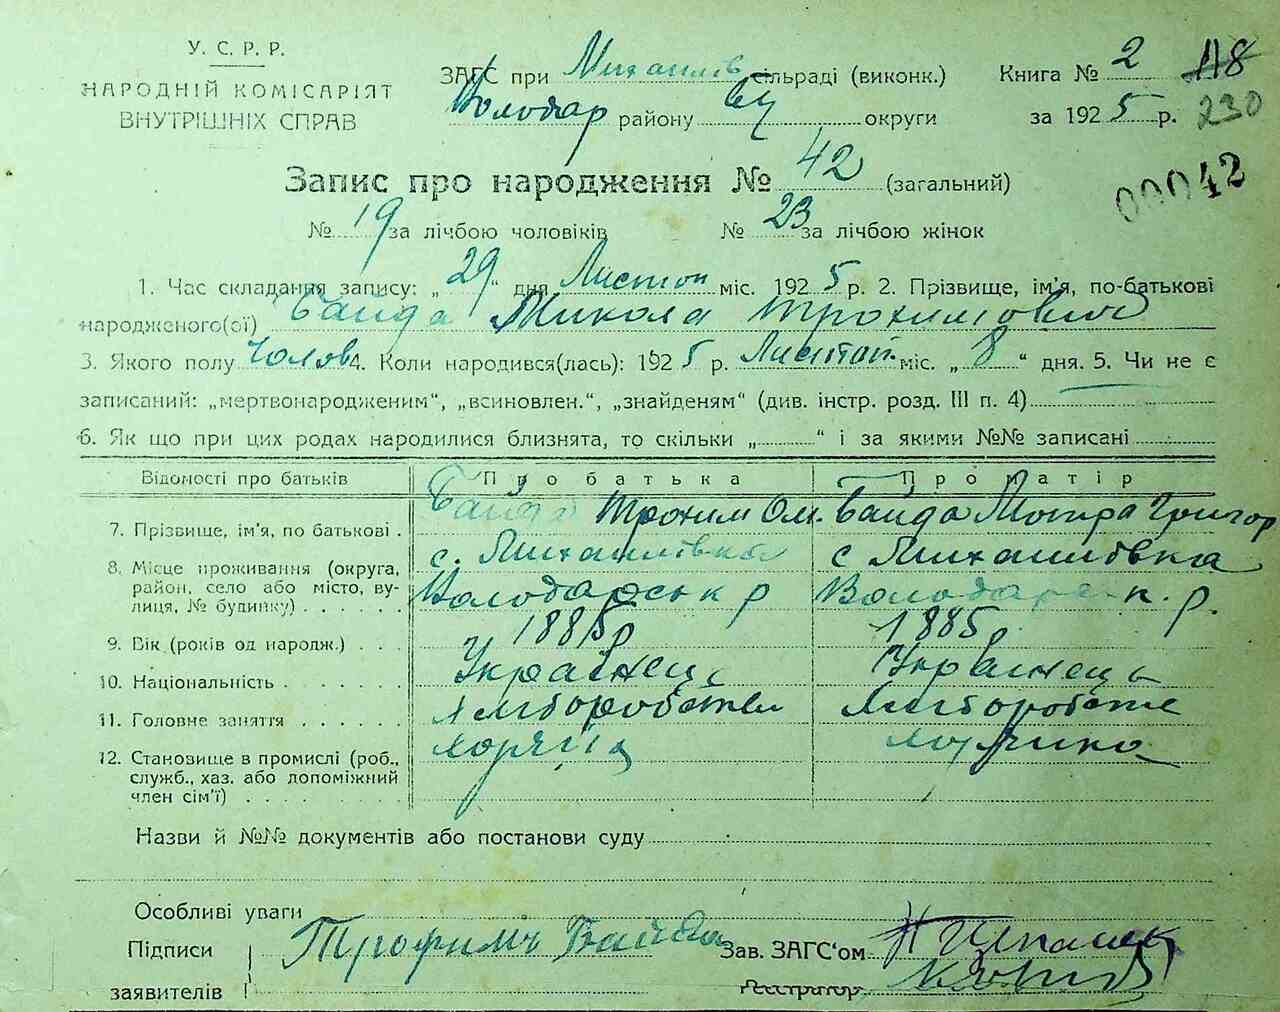 У. С. Р. Р.
НАРОДНІЙ КОМІСАРІЯТ
ВНУТРІШНІХ СПРАВ
ЗАГС при Михайлів сільраді (виконк.)
Володар району БЦ округи
Книга № 2 118
за 1925 р. 230
Запис про народження № 42 (загальний)
00042
№ 19 за лічбою чоловіків № 23 за лічбою жінок
1. Час складання запису: „29“ дня Листоп міс. 1925 р. 2. Прізвище, ім'я, по-батькові
народженого(ої) Байда Микола Трохимович
3. Якого полу Чолов 4. Коли народився(лась): 1925 р. Листоп міс. „8“ дня. 5. Чи не є
записаний: „мертвонародженим“, „всиновлен.“, „знайденям“ (див. інстр. розд. III п. 4)
6. Як що при цих родах народилися близнята, то скільки „ “ і за якими №№ записані
Відомості про батьків Про батька Про матір
7. Прізвище, ім'я, по батькові . Байда Трохим Ом. Байда Мотра Григор
8. Місце проживання (округа, с. Михайлівка с Михайлівка
район, село або місто, ву-
лиця, № будинку) Володарськ р Володарськ. р.
9. Вік (років од народж.) 1885р 1885р
10. Національність Українець Українець
11. Головне заняття Хлібороб
12. Становище в промислі (роб.,
служб., хаз. або допоміжний
член сім'ї)
Назви й №№ документів або постанови суду
Особливі уваги
Підписи
заявителів
Трофимъ Байда
Зав. ЗАГС'ом
Реєстратор